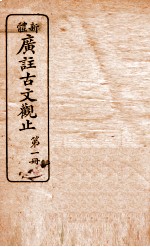 新體
廣註古文觀止
第一冊